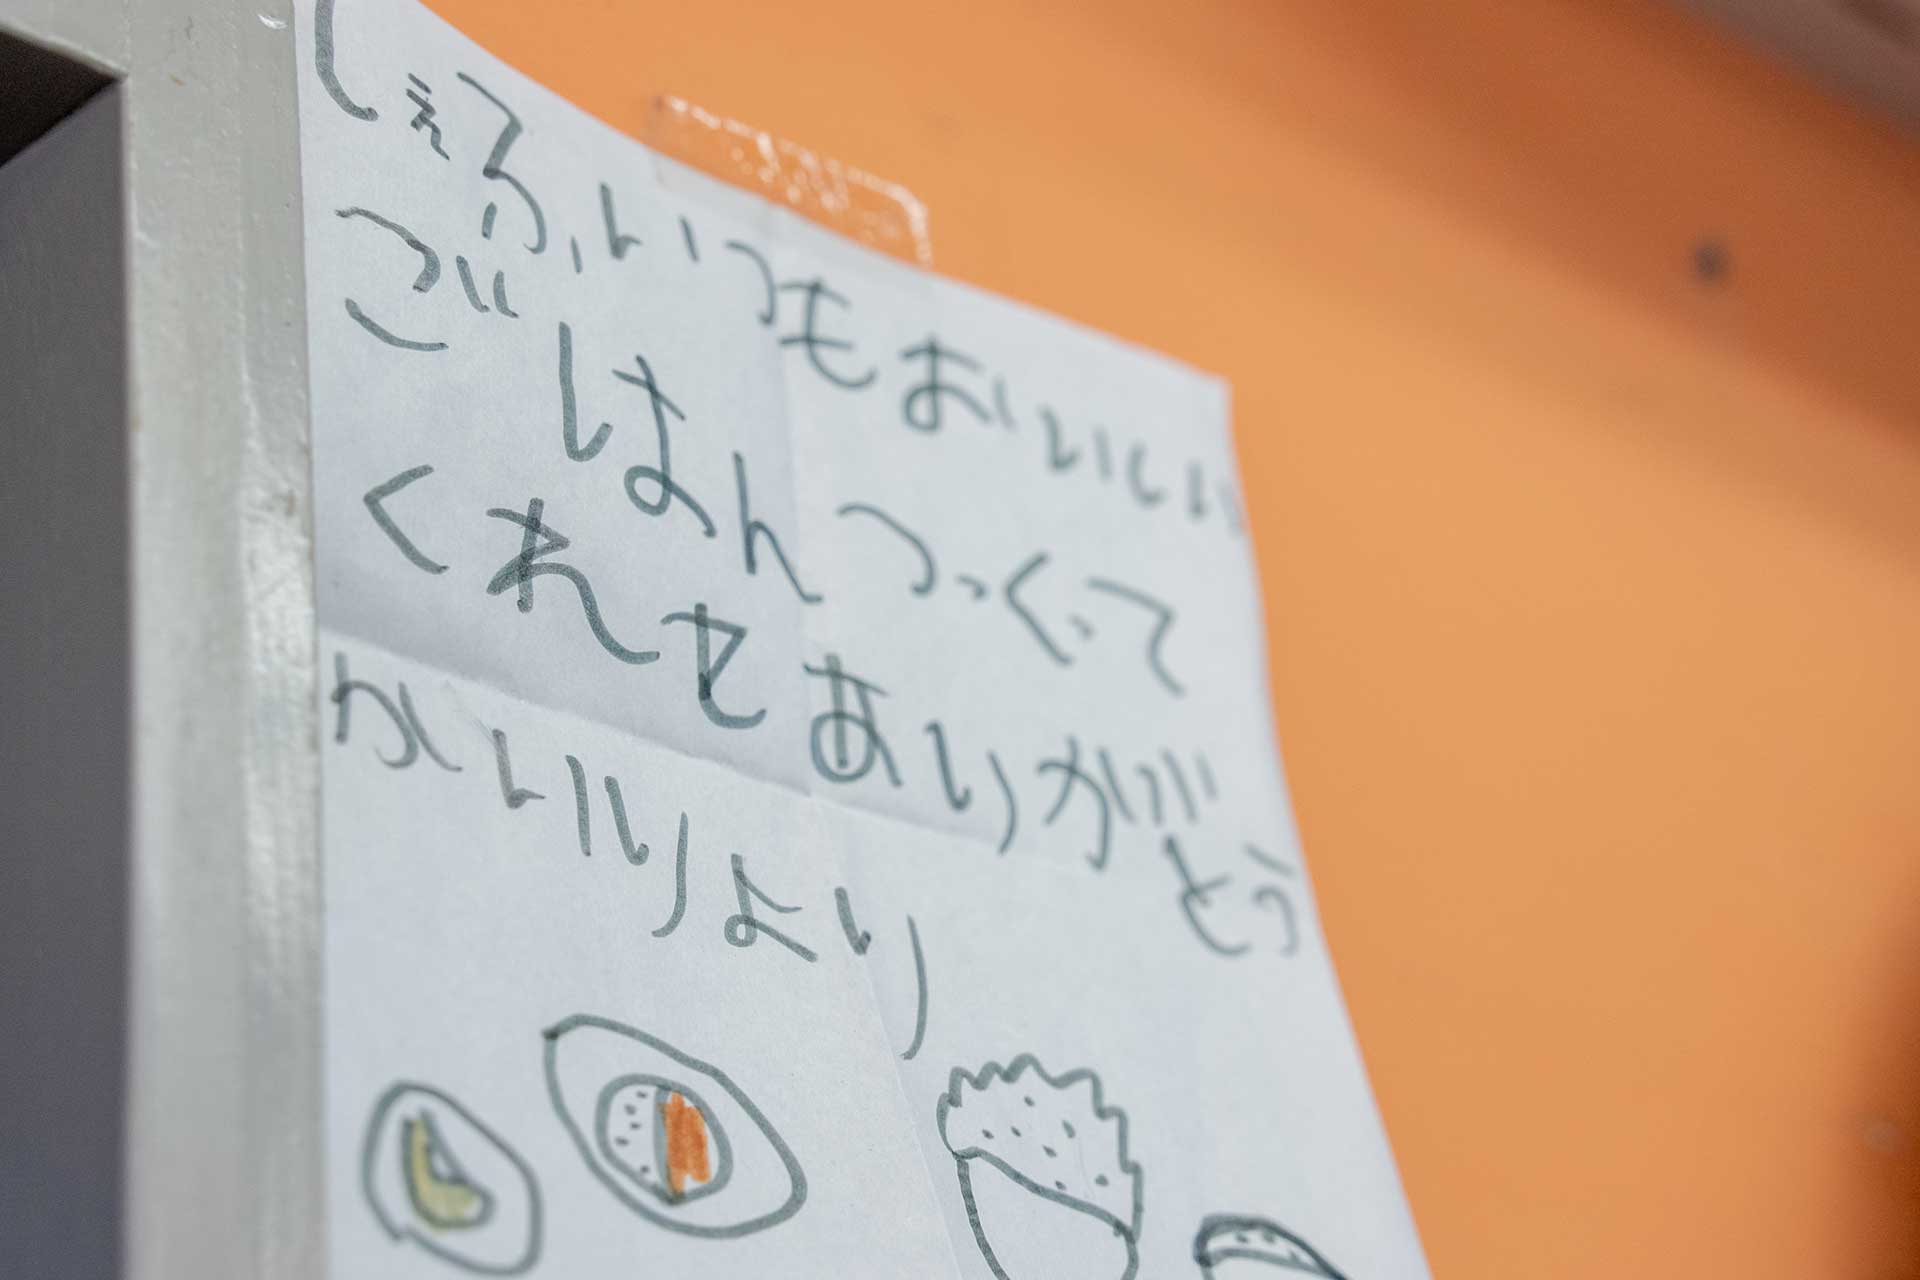 しぇふ、いつもおいしい
ごはんつっくって
くれセありがとう
かいりより